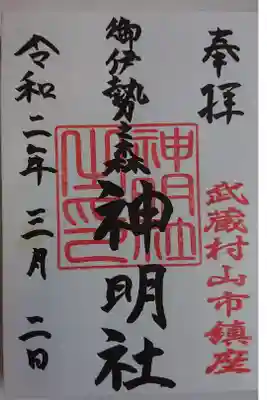 奉拝
武蔵村山市鎮座
御伊勢之森
神明社
神明社之印
令和二年三月二日